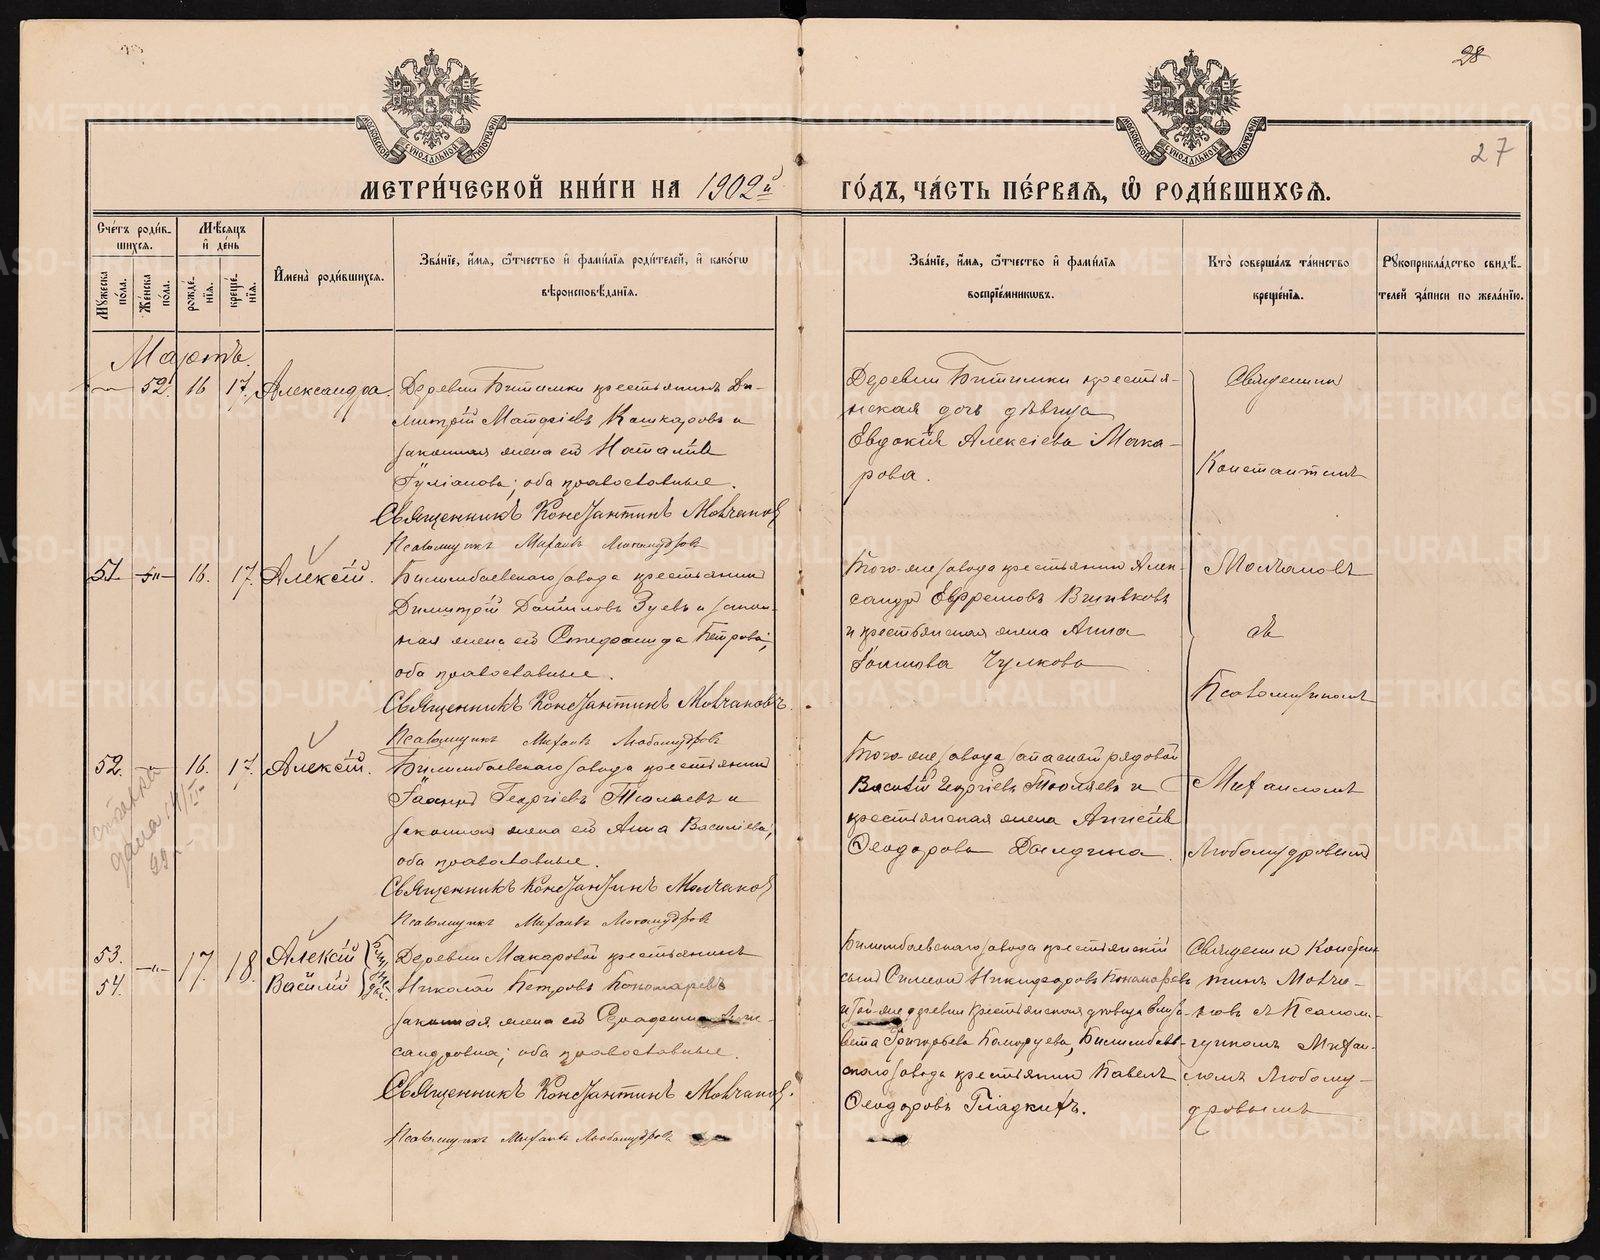 28
27
МОСКОВСКОЙ СѴНОДАЛЬНОЙ ТИПОГРАФІИ
МОСКОВСКОЙ СѴНОДАЛЬНОЙ ТИПОГРАФІИ
МЕТРИ́ЧЕСКОЙ КНИ́ГИ НА 1902й ГО́ДЪ, ЧА́СТЬ ПЕ́РВАѦ, Ѡ РОДИ́ВШИХСѦ.
Сче́тъ роди́в-
шихся.
Мѣ́сяцъ
и де́нь
Му́жеска по́ла.
Же́нска по́ла.
рожде́-нїя.
креще́-нїя.
И́мена роди́вшихся.
Зва́нїе, и́мя, ѻ́тчество и фами́лїя роди́телей, и како́гѡ
вѣроисповѣ́данїя.
Зва́нїе, и́мя, ѻ́тчество и фами́лїя
воспрїе́мникѡвъ.
Кто̀ соверша́лъ та́инство
креще́нїя.
Рꙋкоприкла́дство свидѣ́-
телей за́писи по жела́нїю.
Мартъ.
52. 16 17. Александра.
Деревни Битимки крестьянинъ Ди-
митрій Матѳеевъ Кашкаровъ и
законная жена его Наталія
Іуліанова; оба православные.
Священникъ Константинъ Молчановъ
Псаломщикъ Михаилъ Любомудровъ
Деревни Битимки крестья-
нская дочь дѣвица
Евдокія Алексіева Мака-
рова.
Священник
Константинъ
Молчановъ
съ
Псаломщикомъ
Михаиломъ
Любомудровым
51. 16. 17. Алексій.
Билимбаевскаго завода крестьянин
Димитрій Даниловъ Зуевъ и закон-
ная жена его Стефанида Петрова;
оба православные.
Священникъ Константинъ Молчановъ.
Псаломщикъ Михаилъ Любомудровъ
Того-же завода крестьянин Алек-
сандр Ефремовъ Вшивковъ
и крестьянская жена Анна
Чулкова
52. 16. 17. Алексій.
Билимбаевскаго завода крестьянин
Іоаннъ Георгіевъ и
законная жена его Анна Василіева;
оба православные.
Священникъ Константинъ Молчановъ
Псаломщикъ Михаилъ Любомудровъ
Того-же завода запасной рядовой
Василій Георгіевъ и
крестьянская жена Анисія
Ѳеодорова Далдина.
справка
дана
53. 17. 18. Алексій
54. Василій
Деревни Макаровой крестьянинъ
Николай Петровъ Пономаревъ
законная жена его
сандровна; оба православные.
Священникъ Константинъ Молчановъ.
Псаломщикъ Михаилъ Любомудровъ
Билимбаевскаго завода крестьянскій
сынъ Симеон Никифоровъ Пономаревъ
и той-же деревни крестьянская дѣвица Елиза-
вета Григорьева Билимбаев-
скаго завода крестьянин Павелъ
Ѳеодоровъ Гладкихъ.
Священник Констан
тинъ Молча-
новъ съ Псалом-
щикомъ Михаи-
ломъ Любому-
дровымъ
METRIKI.GASO-URAL.RU